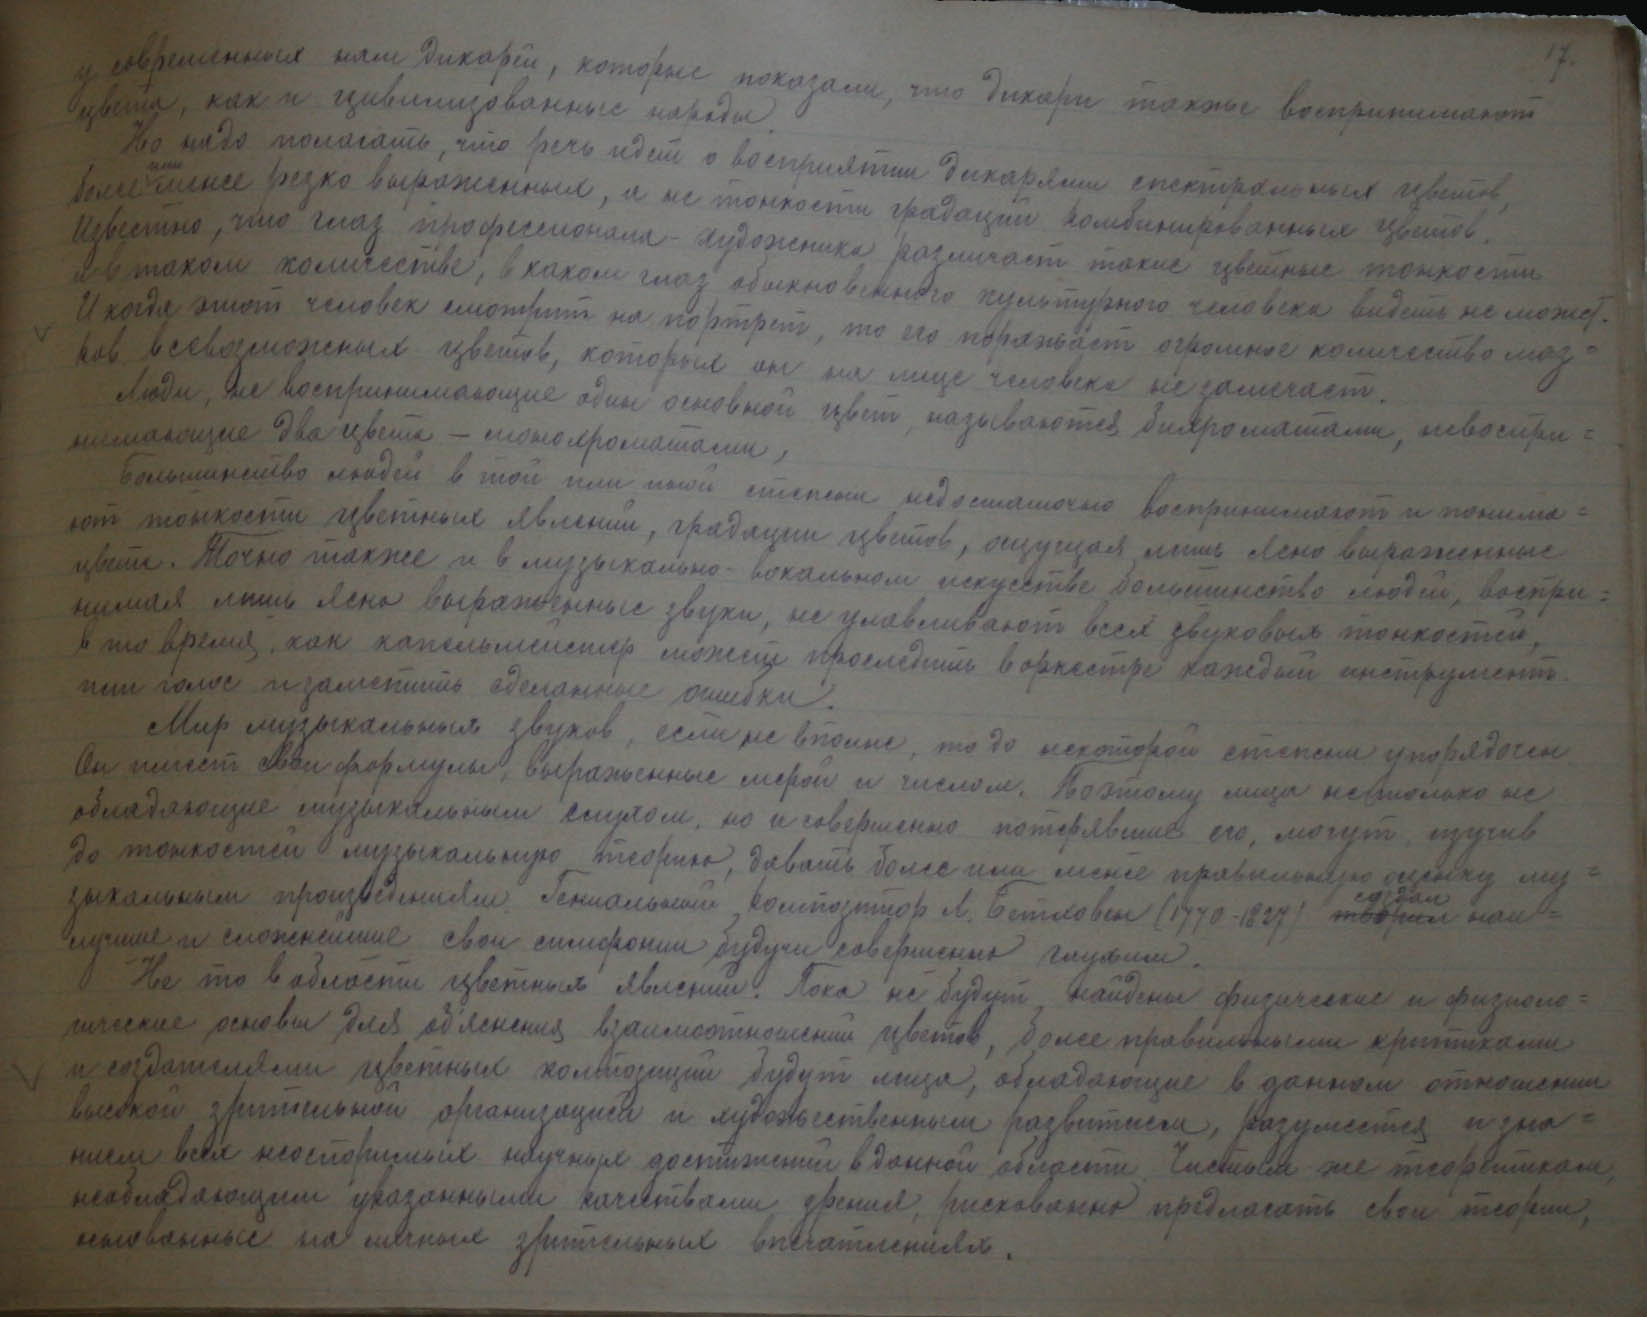 17.
у современных нам дикарей, которые показали, что дикари также воспринимают
цвета, как и цивилизованные народы.
Но надо полагать, что речь идет о восприятии дикарями спектральных цветов,
более или менее резко выраженных, а не тонкости градаций комбинированных цветов.
Известно, что глаз профессионала-художника различает такие цветные тонкости
и в таком количестве, в каком глаз обыкновенного культурного человека видеть не может.
И когда этот человек смотрит на портрет, то его поражает огромное количество маз=
ков всевозможных цветов, которых он на лице человека не замечает.
Люди, не воспринимающие один основной цвет, называются бихроматами, невоспри=
нимающие два цвета – монохроматами,
Большинство людей в той или иной степени недостаточно воспринимают и понима=
ют тонкости цветных явлений, градации цветов, ощущая лишь ясно выраженные
цвета. Точно также и в музыкально-вокальном искусстве большинство людей, воспри=
нимая лишь ясно выраженные звуки, не улавливают всех звуковых тонкостей,
в то время, как капельмейстер может проследить в оркестре каждый инструмент
или голос и заметить сделанные ошибки.
Мир музыкальных звуков, если не вполне, то до некоторой степени упорядочен.
Он имеет свои формулы, выраженные мерой и числом. Поэтому лица не только не
обладающие музыкальным слухом, но и совершенно потерявшие его, могут, изучив
до тонкостей музыкальную теорию, давать более или менее правильную оценку му=
зыкальным произведениям. Гениальный композитор Л. Бетховен (1770-1827) творил создал наи=
лучшие и сложнейшие свои симфонии будучи совершенно глухим.
Не то в области цветных явлений. Пока не будут найдены физические и физиоло=
гические основы для об'яснения взаимоотношений цветов, более правильными критиками
и создателями цветных композиций будут лица, обладающие в данном отношении
высокой зрительной организацией и художественным развитием, разумеется и зна=
нием всех неоспоримых научных достижений в данной области. Чистым же теоретикам,
необладающим указанными качествами зрения, рискованно предлагать свои теории,
основанные на личных зрительных впечатлениях.